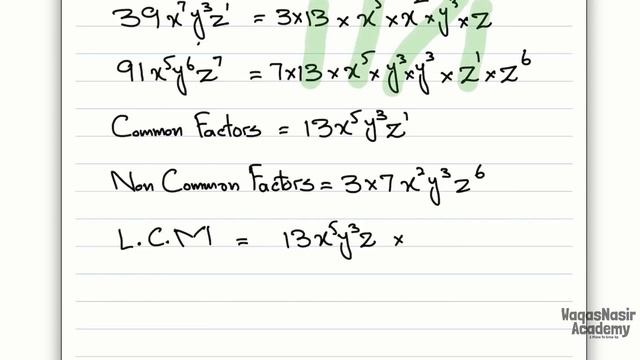 39x⁷y³z¹ = 3×13 × x⁵ × x² × y³ × z
91x⁵y⁶z⁷ = 7×13 × x⁵ × y³ × y³ × z¹ × z⁶
Common Factors = 13x⁵y³z¹
Non Common Factors = 3×7x²y³z⁶
L.C.M = 13x⁵y³z ×
WaqasNasir
Academy